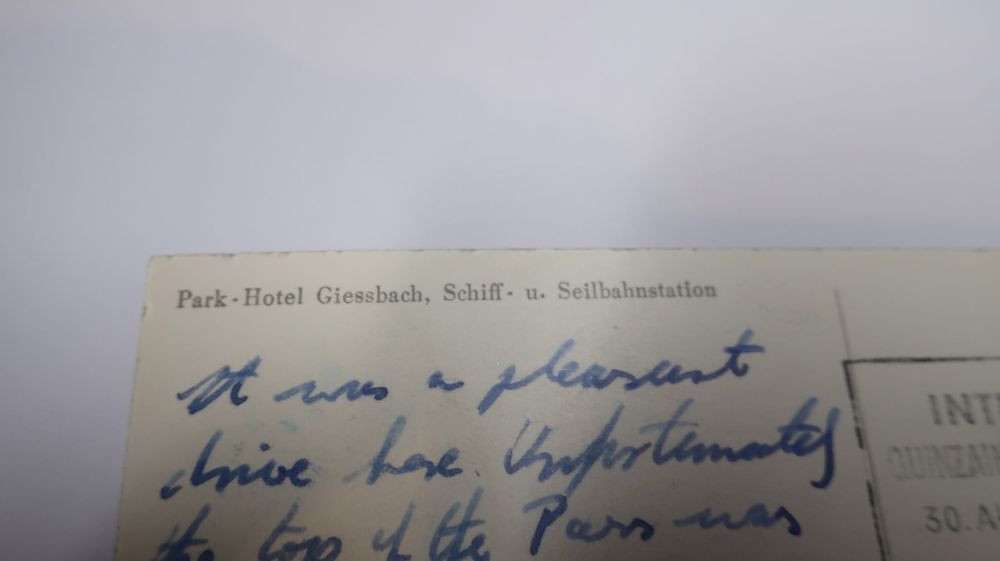 Park-Hotel Giessbach, Schiff- u. Seilbahnstation
It was a pleasant
drive here. Unfortunately
the top of the Pass was
INT
QUINZAIN
30.A